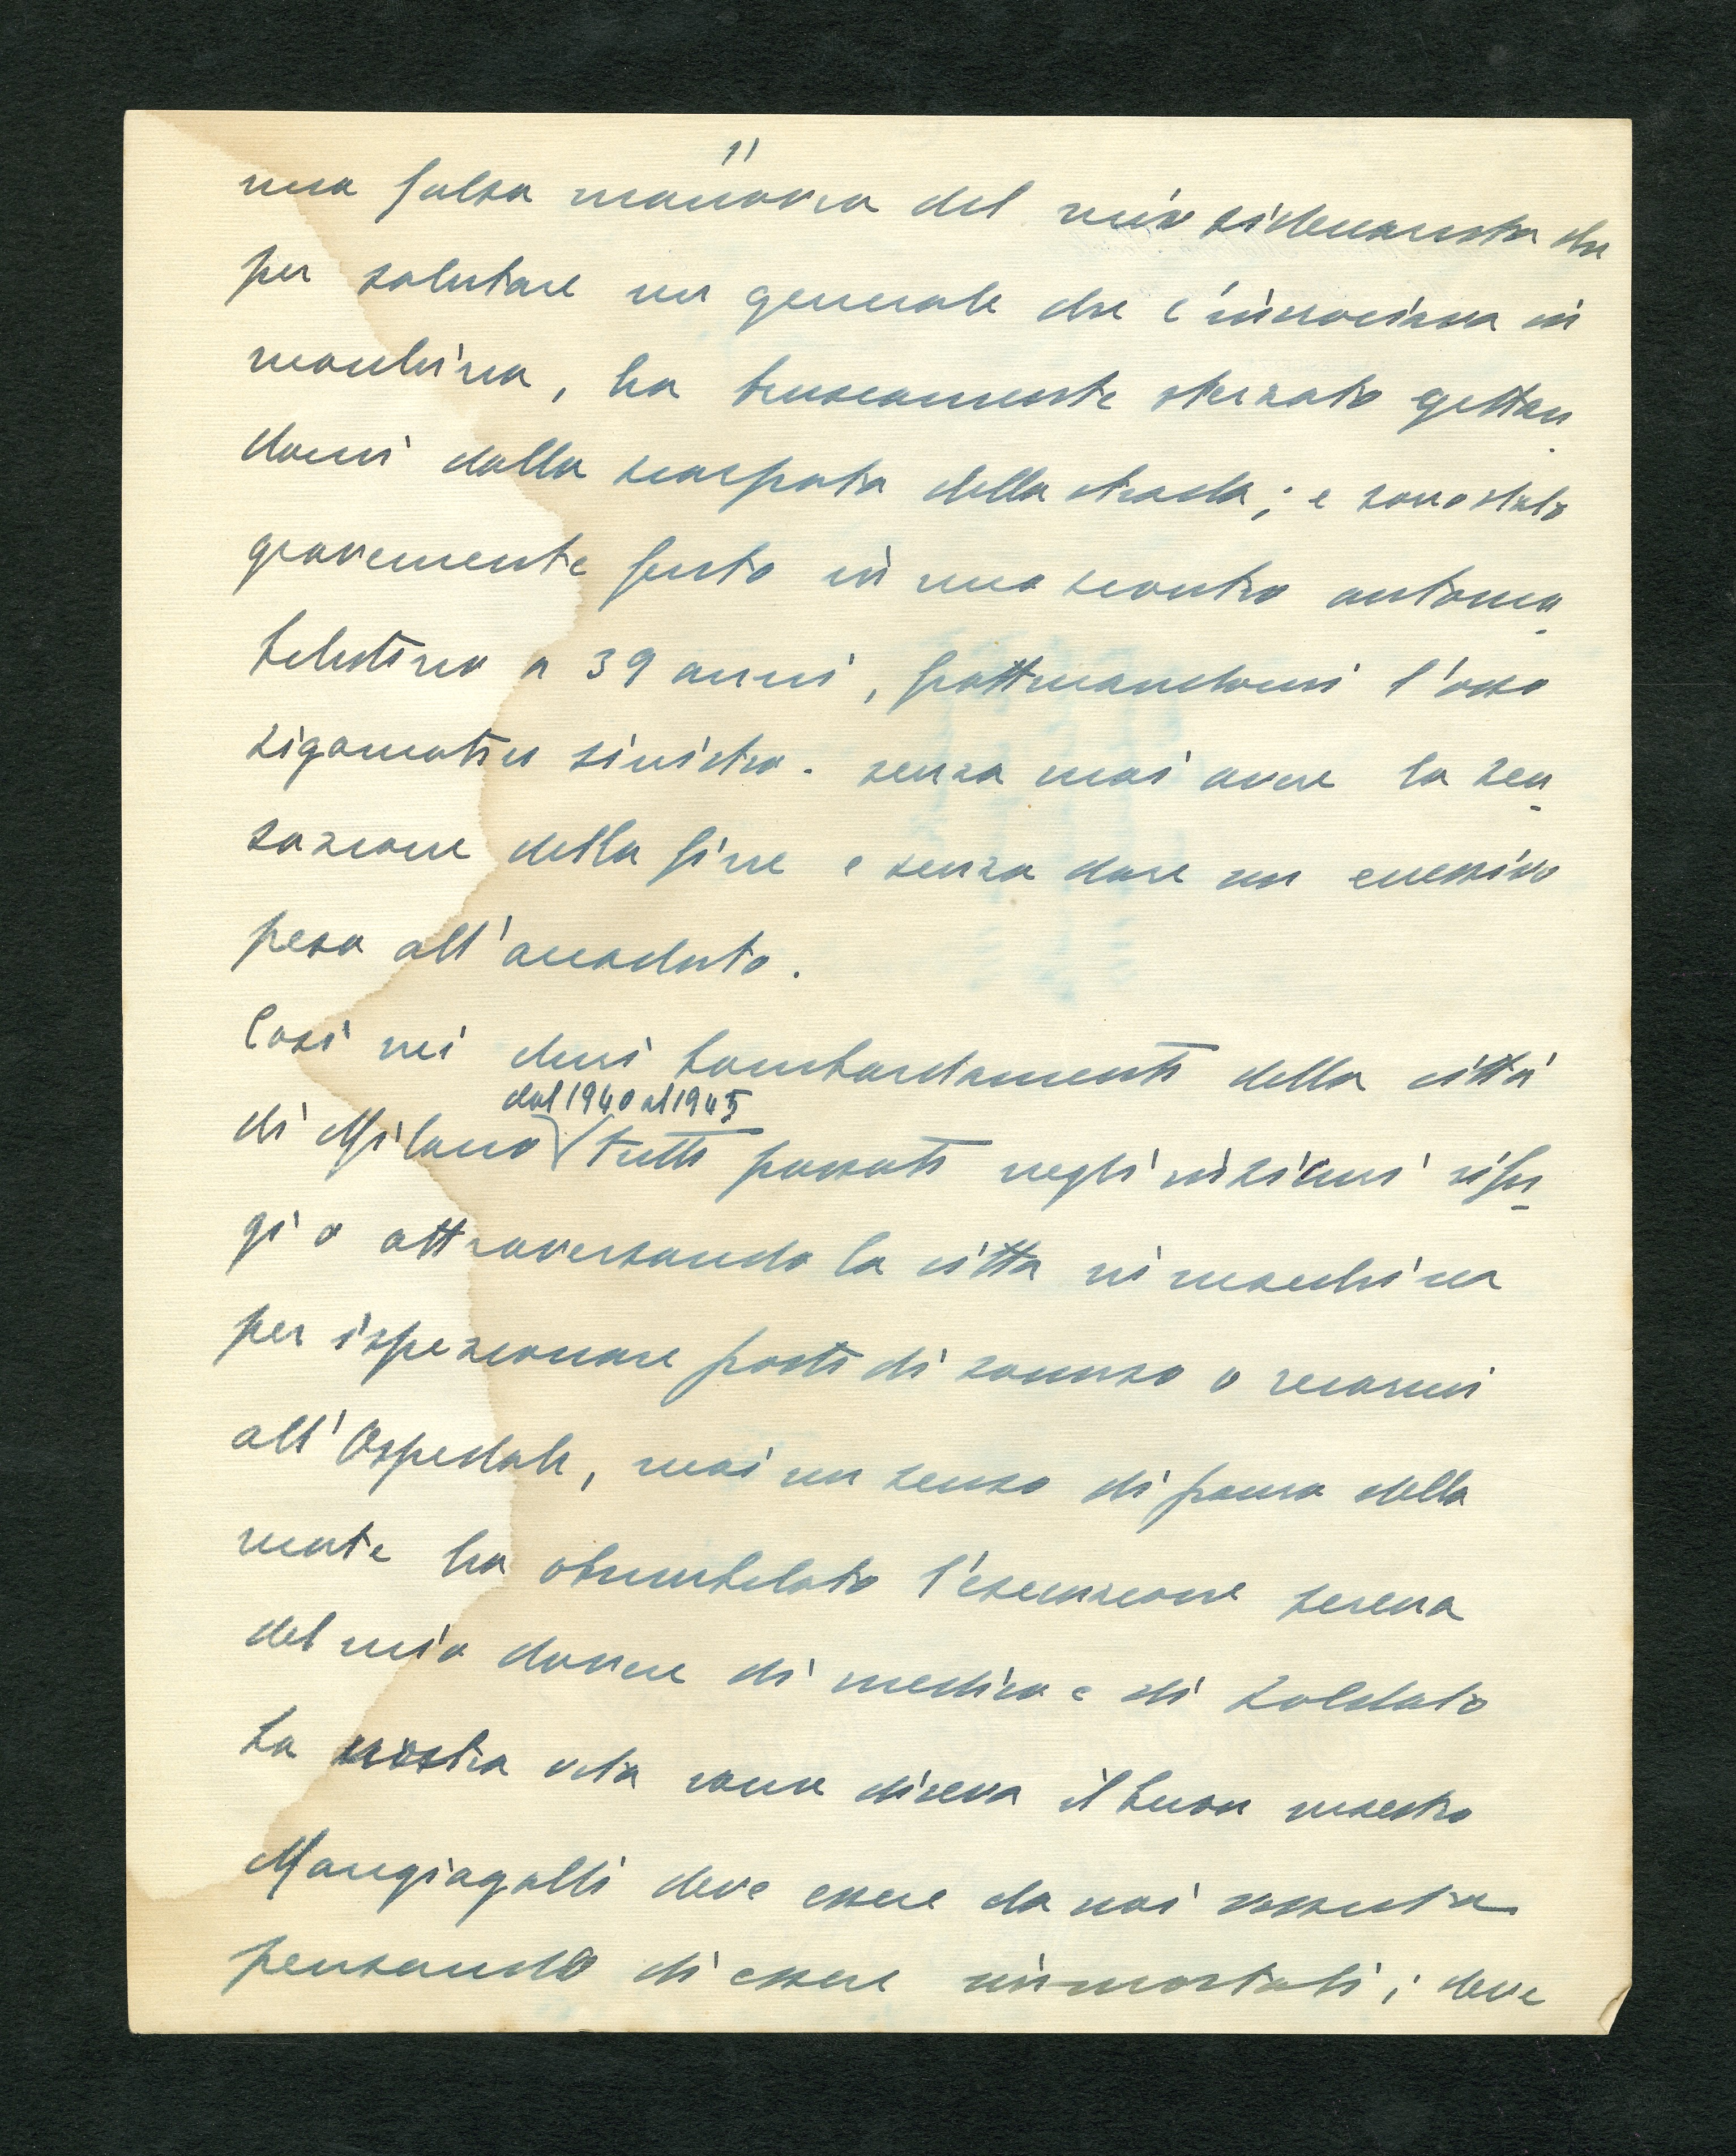 11
una falsa manovra del mio sidecarista che
per salutare un generale che c'incrociava in
macchina, ha bruscamente sterzato gettan
domi dalla scarpata della strada; e sono stato
gravemente ferito in uno scontro automo
bilistico a 39 anni, fratturandomi l'osso
zigomatico sinistro. senza mai avere la sen
sazione della fine e senza dare un eccessivo
peso all'accaduto.
Così nei duri bombardamenti della città
dal 1940 al 1945
di Milano tutti passati negli rifu
gi o attraversando la città in macchina
per ispezionare posti di soccorso o recarmi
all'Ospedale, mai un senso di paura della
morte ha obnubilato l'esecuzione serena
del mio dovere di medico e di soldato
La nostra vita come diceva il buon maestro
Mangiagalli deve essere da noi vissuta
pensando di essere immortali; deve